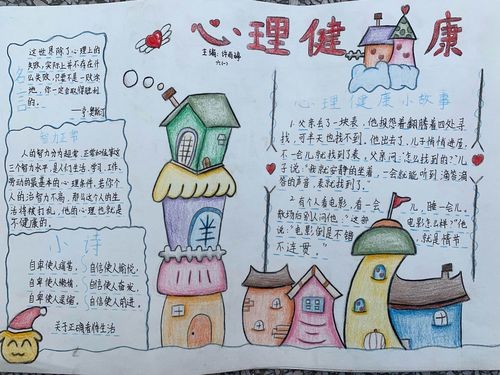 心理健康
主编:许雨婷
六(1)
名言
这世界除了心理上的
失败,实际上并不存在什
么失败,只要不是一败涂
地,你一定会取得胜利
的。
智力正常
人的智力分为超常、正常和低常这
三个智力水平,是人们生活、学习、工作、
劳动的最基本的心理条件,若你个
人的治智力不高,那么这个人的生
活将被打乱,他的心理也就是
不健康的。
小诗
自卑使人痛苦,自信使人愉悦,
自卑使人懒惰,自信使人奋发,
自卑使人退缩,自信使人前进。
关于正确看待生活
心理健康小故事
1.父亲丢了一块表,他抱怨着翻腾着四处寻
找,可半天也找不到,他出去了,儿子悄悄进屋,
不一会儿就找到了表,父亲问:怎么找到的?"儿
子说:"我就安静的坐着,一会就能听到滴答滴
答的声音,表就找到了。
2.有个人看电影,看一会儿,睡一会儿,
散场后别人问他:"这部电影怎么样?"他
说:"电影倒是不错,就是情节
不连贯。"